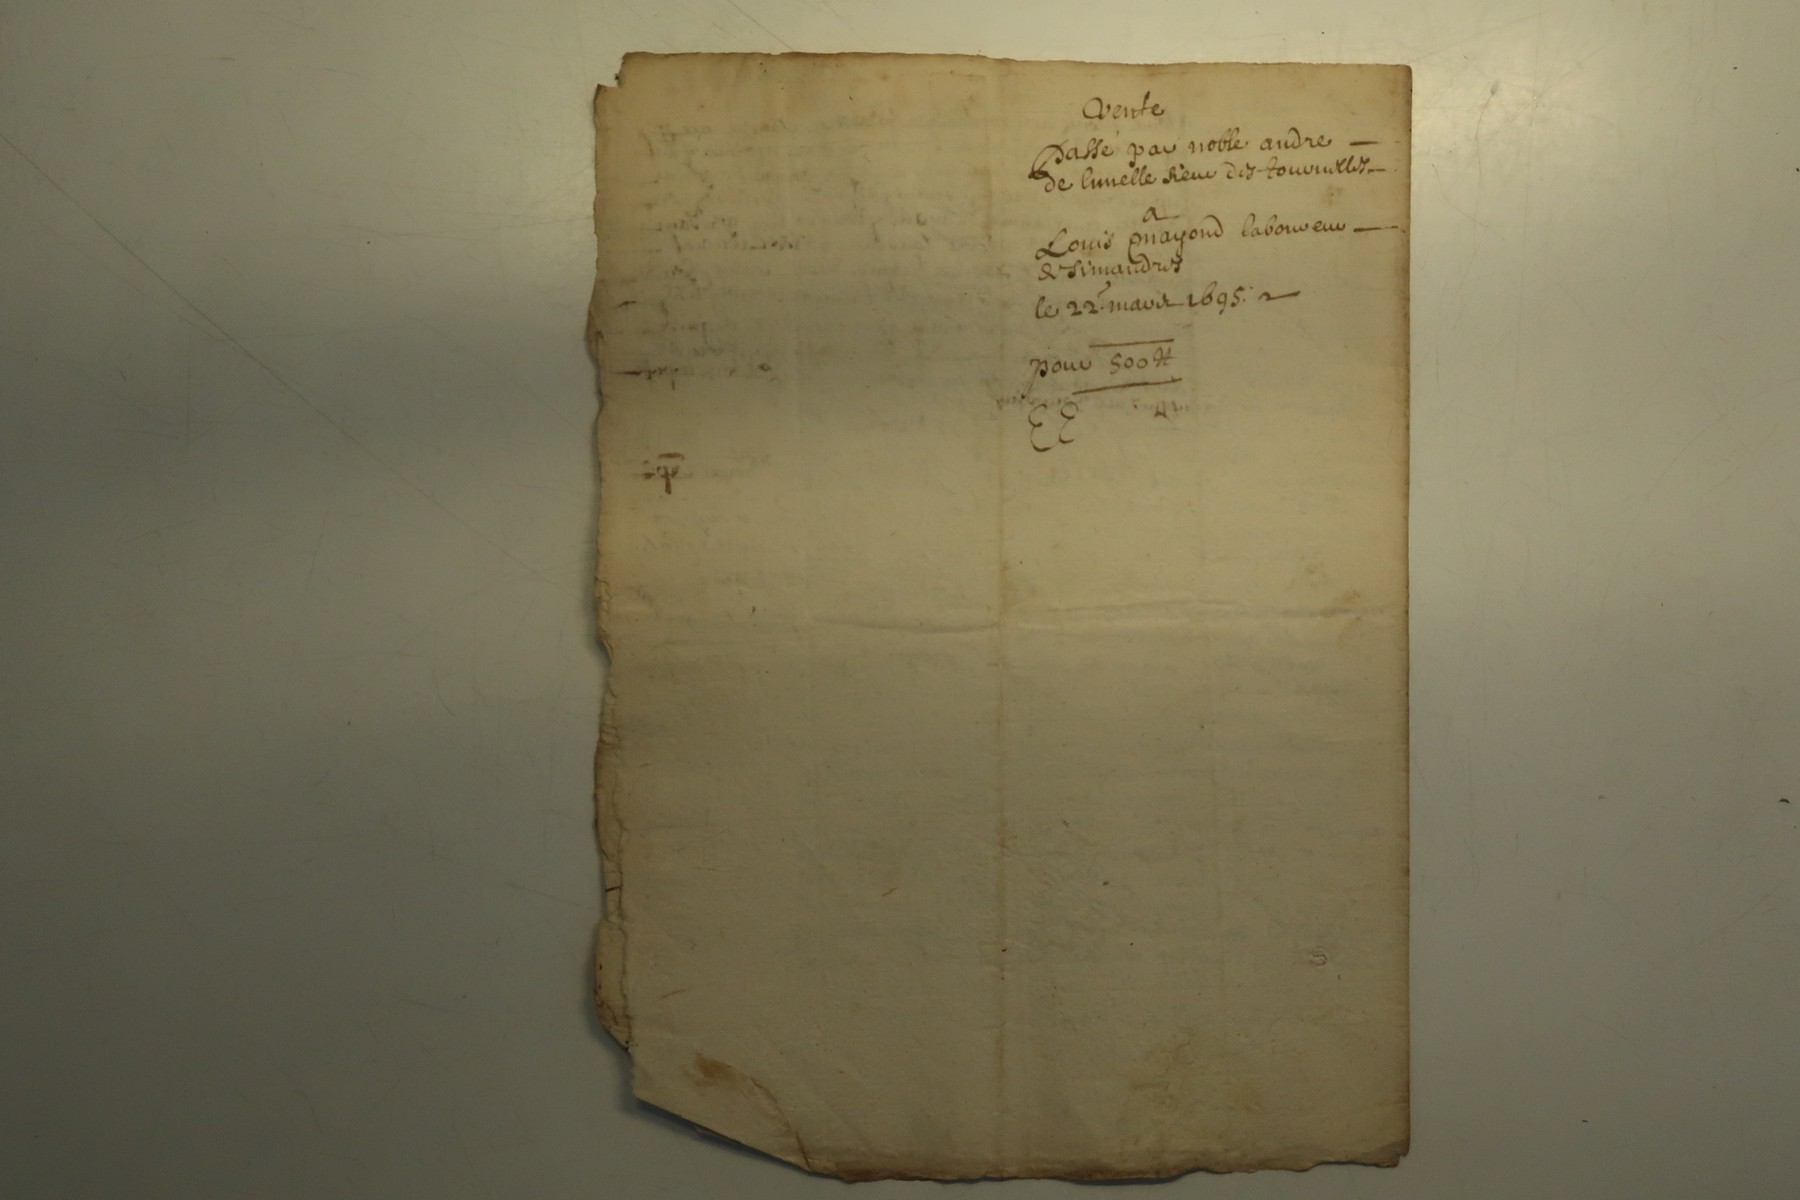 Vente
Passé par noble andre
de lunelle sieur des tournelles
a
Louis mayond laboureur
de Simandres
le 22e mars 1695
pour 500 ₶
EE